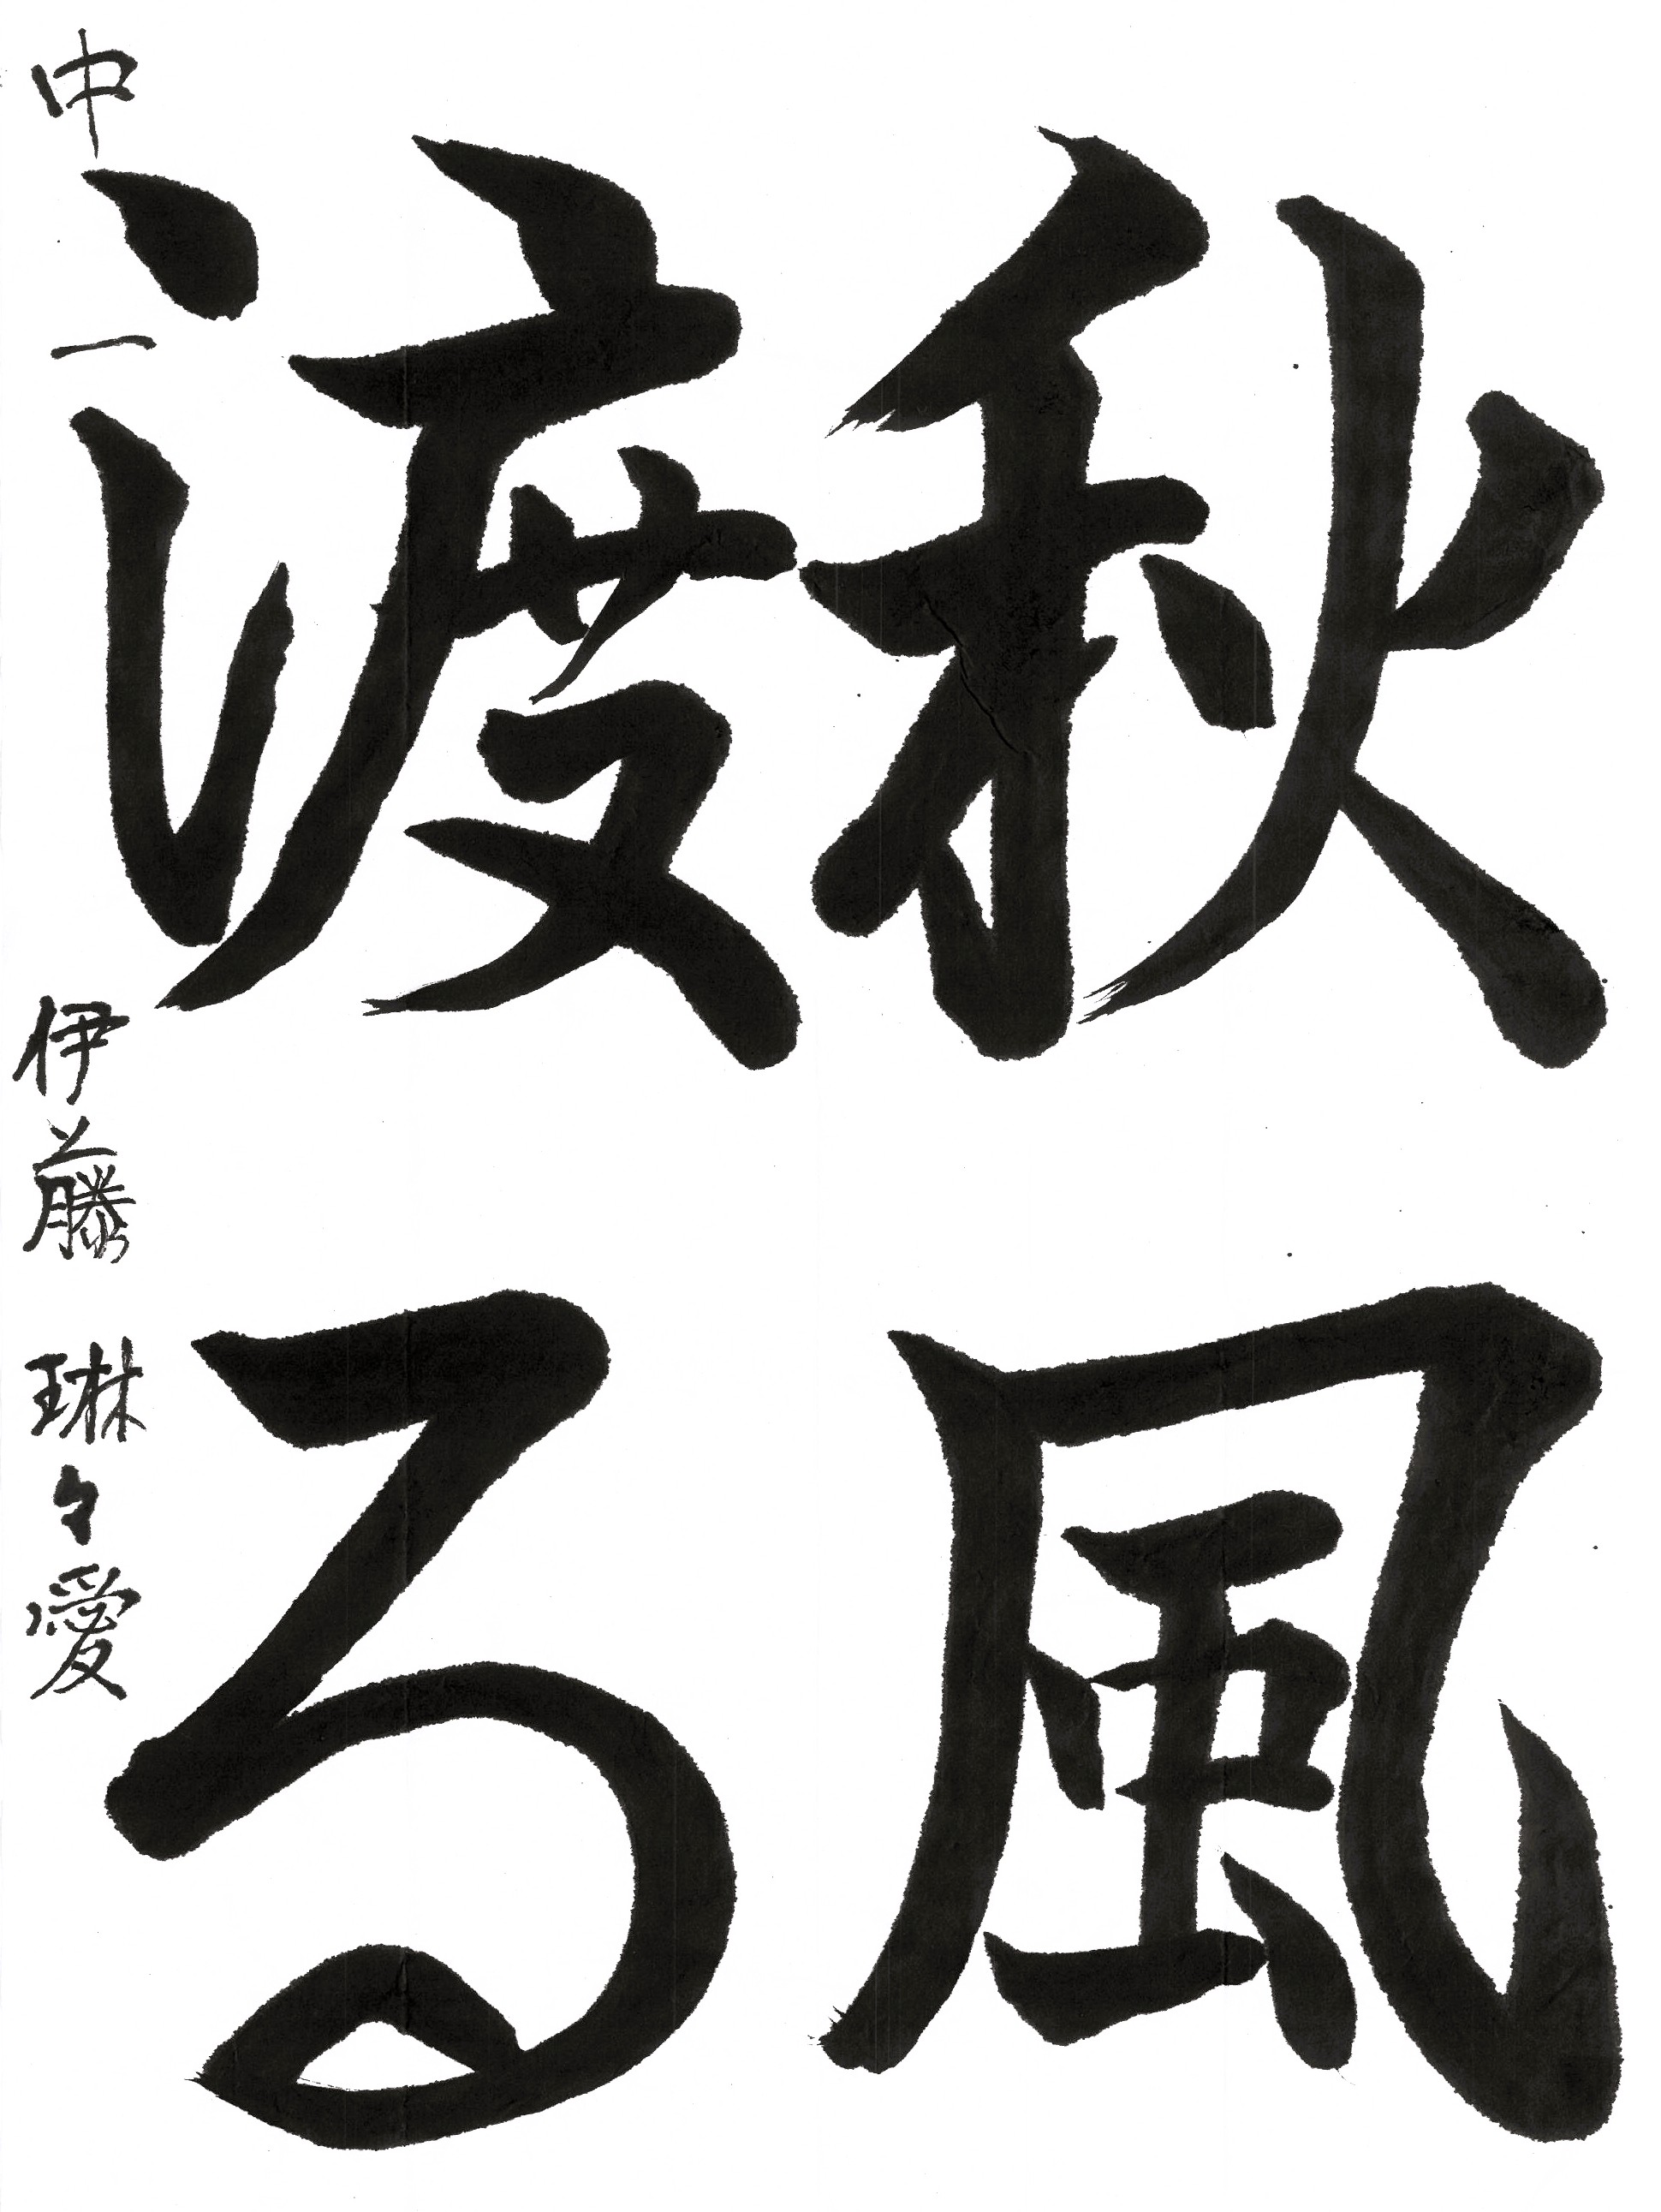 秋風
渡る
中一 伊藤 琳々愛